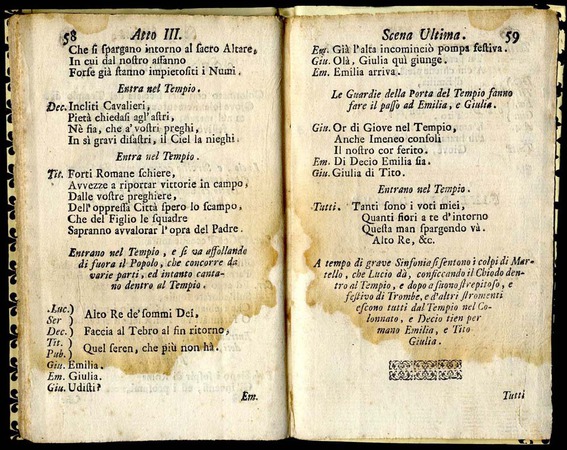 58 Atto III.
Che si spargano intorno al sacro Altare,
In cui dal nostro affanno
Forse già stanno impietositi i Numi.
Entra nel Tempio.
Dec. Incliti Cavalieri,
Pietà chiedasi agl'astri,
Nè sia, che a' vostri preghi,
In sì gravi disastri, il Ciel la nieghi.
Entra nel Tempio.
Tit. Forti Romane schiere,
Avvezze a riportar vittorie in campo,
Dalle vostre preghiere,
Dell'oppressa Città spero lo scampo,
Che del Figlio le squadre
Sapranno avvalorar l'opra del Padre.
Entrano nel Tempio, e si va affollando
di fuora il Popolo, che concorre da
varie parti, ed intanto canta-
no dentro al Tempio.
Luc.)
Ser ) Alto Re de' sommi Dei,
Dec.) Faccia al Tebro al fin ritorno,
Tit. )
Pub.) Quel seren, che più non hà.
Giu. Emilia.
Em. Giulia.
Giu. Udisti?
Em.
Scena Ultima. 59
Em. Già l'alta incominciò pompa festiva.
Giu. Olà, Giulia quì giunge.
Em. Emilia arriva.
Le Guardie della Porta del Tempio fanno
fare il passo ad Emilia, e Giulia.
Giu. Or di Giove nel Tempio,
Anche Imeneo consoli
Il nostro cor ferito.
Em. Di Decio Emilia sia.
Giu. Giulia di Tito.
Entrano nel Tempio.
Tutti. Tanti sono i voti miei,
Quanti fiori a te d'intorno
Questa man spargendo và.
Alto Re, &c.
A tempo di grave Sinfonia si sentono i colpi di Mar-
tello, che Lucio dà, conficcando il Chiodo den-
tro al Tempio, e dopo a suono strepitoso, e
festivo di Trombe, e d'altri stromenti
escono tutti dal Tempio nel Co-
lonnato, e Decio tien per
mano Emilia, e Tito
Giulia.
Tutti